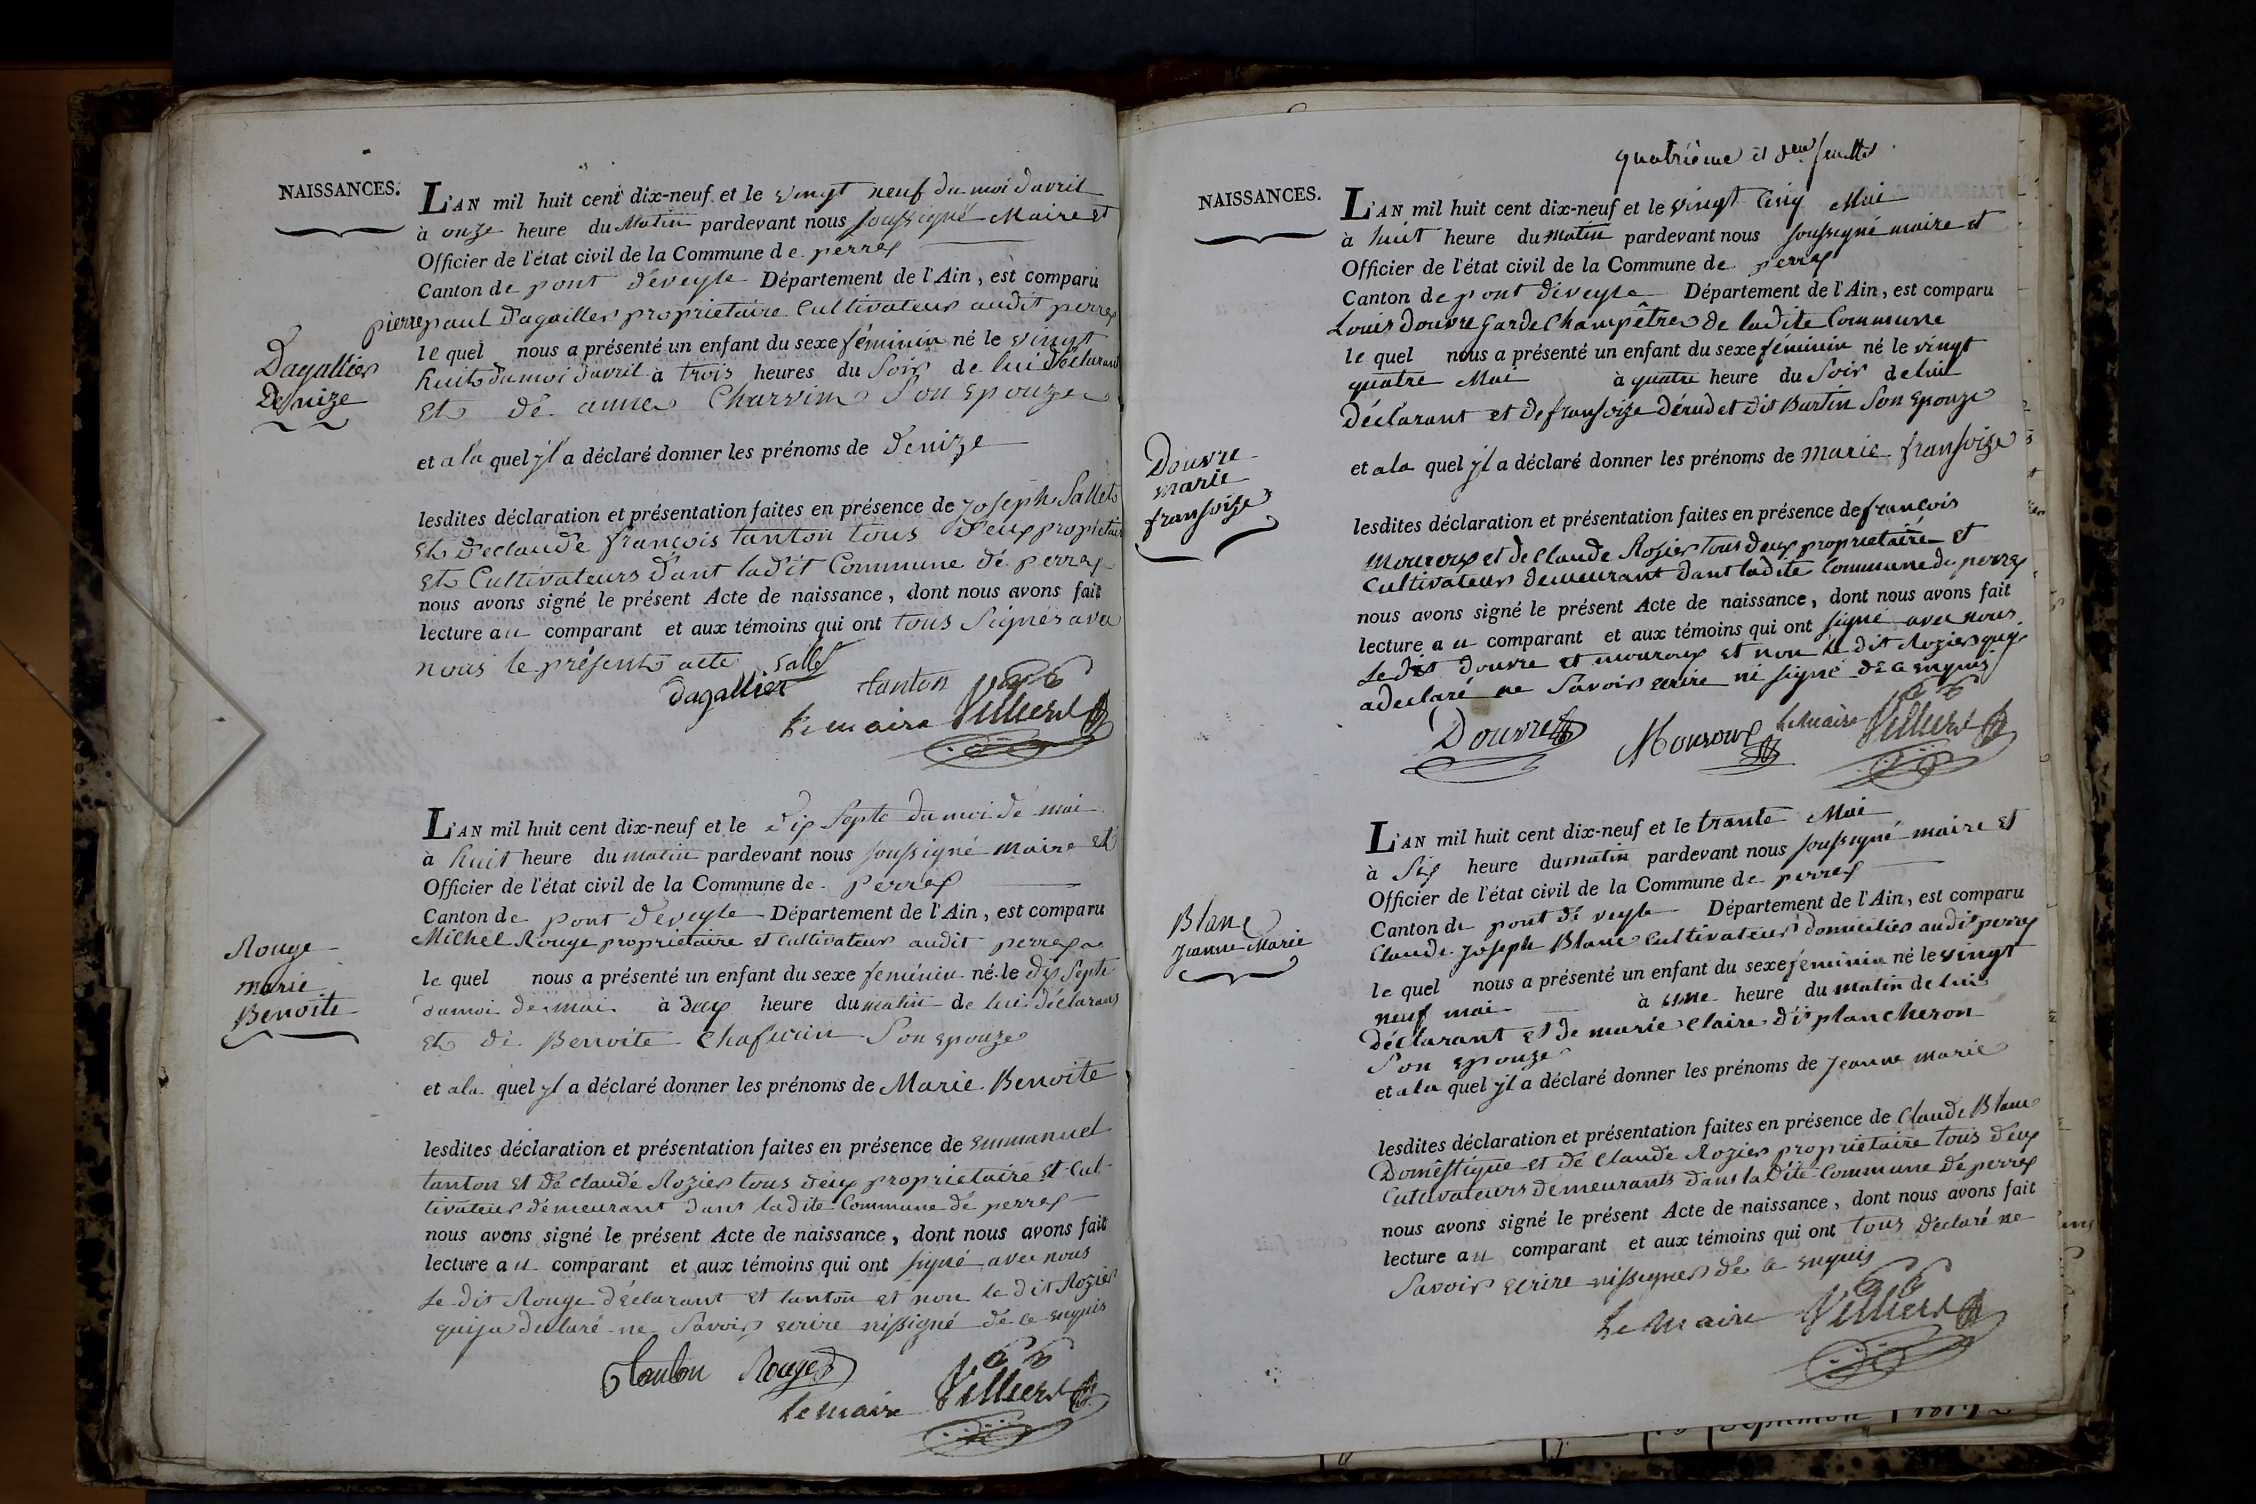 NAISSANCES.
L'AN mil huit cent dix-neuf et le vingt neuf du moi d'avril
à onze heure du Matin pardevant nous soussigné Maire et
Officier de l'état civil de la Commune de perrex
Canton de pont déveyle Département de l'Ain, est comparu
pierre paul Dagaillier proprietaire Cultivateur audit perrex
le quel nous a présenté un enfant du sexe féminin né le vingt
huit du moi d'avril à trois heures du Soir de lui Déclarant
Et dé anne Charvin Son Epouze
Dagallier
Denize
et a la quel jl a déclaré donner les prénoms de Denize
lesdites déclaration et présentation faites en présence de joseph Sallet
Et Declaude françois tanton tous Deux propriétair
Et Cultivateurs d'ant ladit Commune dé perrex
nous avons signé le présent Acte de naissance, dont nous avons fait
lecture au comparant et aux témoins qui ont tous Signés avec
nous le présent acte Sallet
Dagallier tanton
Le maire Villierd
L'AN mil huit cent dix-neuf et le Dix Septe du moi dé mai
à huit heure du matin pardevant nous soussigné maire et
Officier de l'état civil de la Commune de Perrex
Canton de pont déveyle Département de l'Ain, est comparu
Michel Rouge proprietaire et cultivateur audit perrex
le quel nous a présenté un enfant du sexe feminin né le dix Septe
du moi de mai à Deux heure du matin de lui déclarant
Et dé Benoite Chafurin Son epouze
Rouge
marie
Benoite
et a la quel jl a déclaré donner les prénoms de Marie Benoite
lesdites déclaration et présentation faites en présence de Emmanuel
tanton et dé Claude Rozier tous deux proprietaire et Cul-
tivateur démeurant dans ladite Commune dé perrex
nous avons signé le présent Acte de naissance, dont nous avons fait
lecture au comparant et aux témoins qui ont signé avec nous
Le dit Rouge déclarant et tanton et non le dit Rozier
qui ja declaré ne Savoir ecrire nissigné dé ce enquis
tanton Rouge
Le maire Villierd
quatrième et deu feuillet
NAISSANCES.
L'AN mil huit cent dix-neuf et le vingt Cinq Mai
à huit heure du matin pardevant nous soussigné maire et
Officier de l'état civil de la Commune de perrex
Canton de pont déveyle Département de l'Ain, est comparu
Louis Douvre garde Champêtre de ladite Commune
le quel nous a présenté un enfant du sexe féminin né le vingt
quatre Mai à quatre heure du Soir de lui
Déclarant et de fransoize Dérudet dit Burtin Son Epouze
Douvre
marie
fransoize
et a la quel jl a déclaré donner les prénoms de marie fransoize
lesdites déclaration et présentation faites en présence de francois
Mouroux et de Claude Rozier tous deux proprietaire et
Cultivateur demeurant dant ladite Commune de perrex
nous avons signé le présent Acte de naissance, dont nous avons fait
lecture au comparant et aux témoins qui ont signé avec nous
Le dit douvre et mouroux et non le dit Rozier qui
a declaré ne Savoir ecrire ni signé de ce enquis
Douvre Mouroux Le Maire Villierd
L'AN mil huit cent dix-neuf et le trante Mai
à Six heure du matin pardevant nous soussigné maire et
Officier de l'état civil de la Commune de perrex
Canton de pont dé veyle Département de l'Ain, est comparu
Claude Joseph Blanc Cultivateur domicilier audit perrex
le quel nous a présenté un enfant du sexe feminin né le vingt
neuf mai à une heure du matin de lui
Déclarant et de marie Claire dit plancheron
Son epouze
Blanc
Jeanne Marie
et a la quel jl a déclaré donner les prénoms de jeanne marie
lesdites déclaration et présentation faites en présence de Claude Blanc
Domêstique et dé Claude Rozier proprietaire tous deux
Cultivateurs démeurants dans ladite Commune dé perrex
nous avons signé le présent Acte de naissance, dont nous avons fait
lecture au comparant et aux témoins qui ont tous déclaré ne
Savoir ecrire nissigner dé ce enquis
Le Maire Villierd